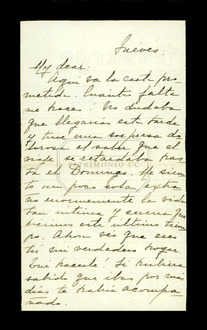 Jueves
My dear:
Aquí va la carta pro
metida. Cuanta falta
me haces! No dudaba
que llegarías esta tarde
y tuve una sorpresa do
lorosa al saber que el
viaje se retardaba has
ta el Domingo. Me sien
to un poco sola, extra
ño enormemente la vida
tan íntima y serena que
hicimos este último tiem
po. Ahora veo que era
tu mi verdadero hogar.
Qué hacerle! Si hubiera
sabido que ibas por más
días te habría acompa
ñado.
PATRIMONIO UC